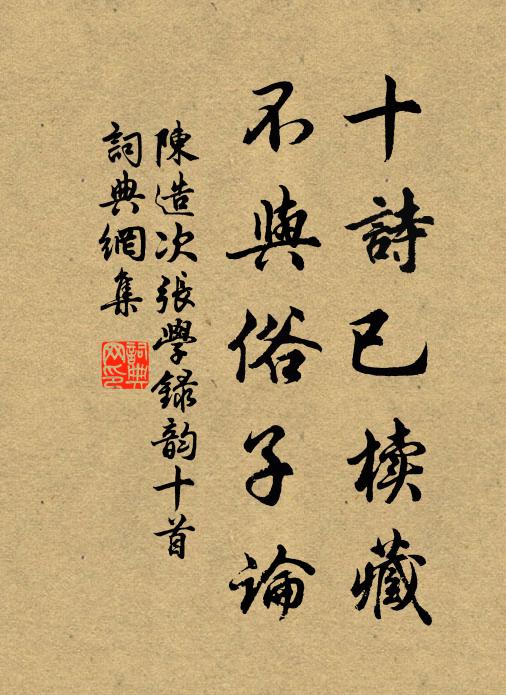 十詩已櫝藏
不與俗子論
陳造次張學録韵十首
詞典網集
詞典网印